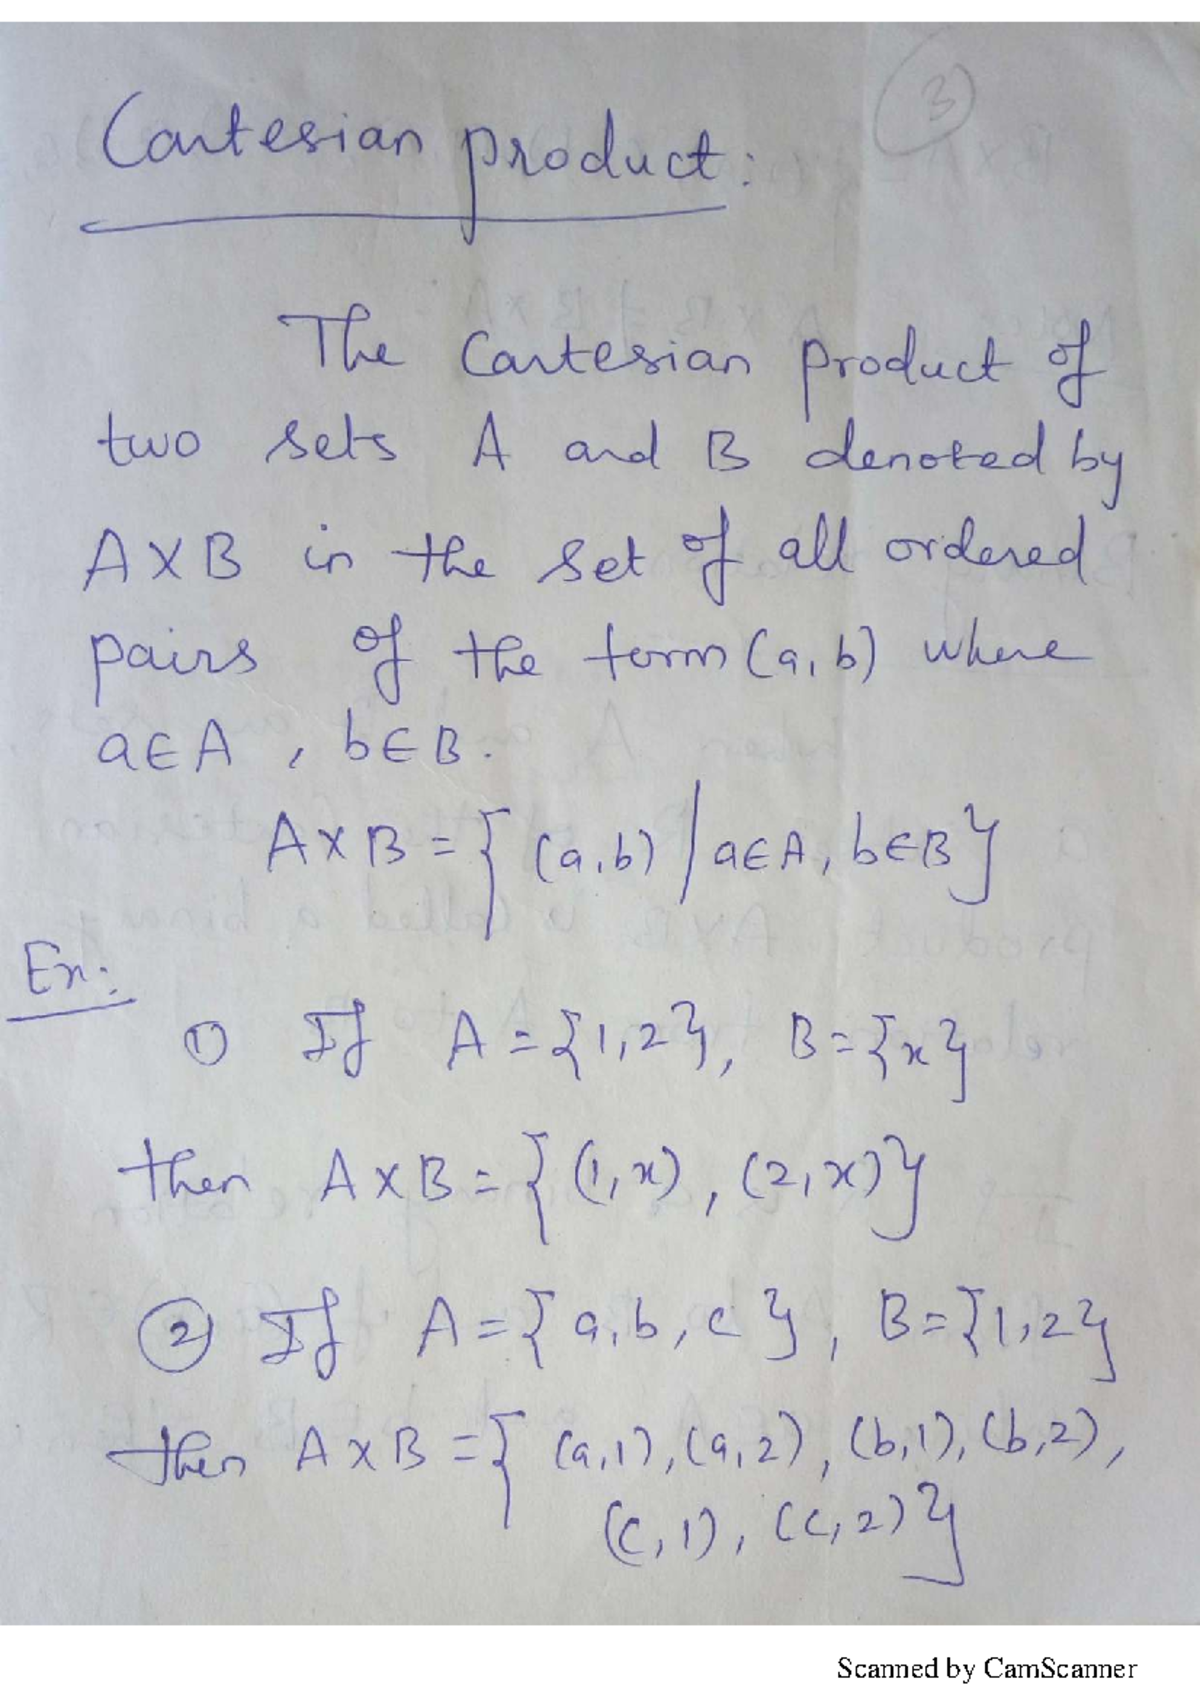 3
Cartesian product:
The Cartesian product of
two sets A and B denoted by
A×B is the set of all ordered
pairs of the form (a, b) where
a∈A , b∈B.
A×B = { (a, b) / a∈A, b∈B }
Ex:
① If A = {1, 2}, B = {x}
then A×B = { (1, x) , (2, x) }
② If A = { a, b, c }, B = {1, 2}
then A×B = { (a, 1), (a, 2), (b, 1), (b, 2),
(c, 1), (c, 2) }
Scanned by CamScanner